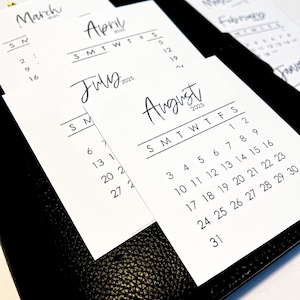 March
2025
S
2
9
16
April
2025
S M T W T F S
5
12
19
26
July
2025
S M
6 7
13 1
20 2
27 2
August
2025
S M T W T F S
1 2
3 4 5 6 7 8 9
10 11 12 13 14 15 16
17 18 19 20 21 22 23
24 25 26 27 28 29 30
31
February